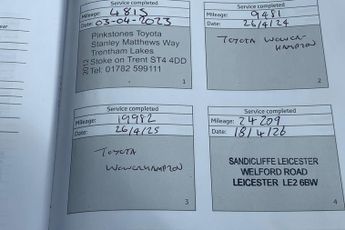 Service completed
Mileage: 4815
Date: 03-04-2023
Pinkstones Toyota
Stanley Matthews Way
Trentham Lakes
Stoke on Trent ST4 4DD
Tel: 01782 599111
1
Service completed
Mileage: 9481
Date: 26/4/24
TOYOTA WOLVERHAMPTON
2
Service completed
Mileage: 19982
Date: 26/4/25
TOYOTA
WOLVERHAMPTON
3
Service completed
Mileage: 24209
Date: 18/4/26
SANDICLIFFE LEICESTER
WELFORD ROAD
LEICESTER LE2 6BW
4